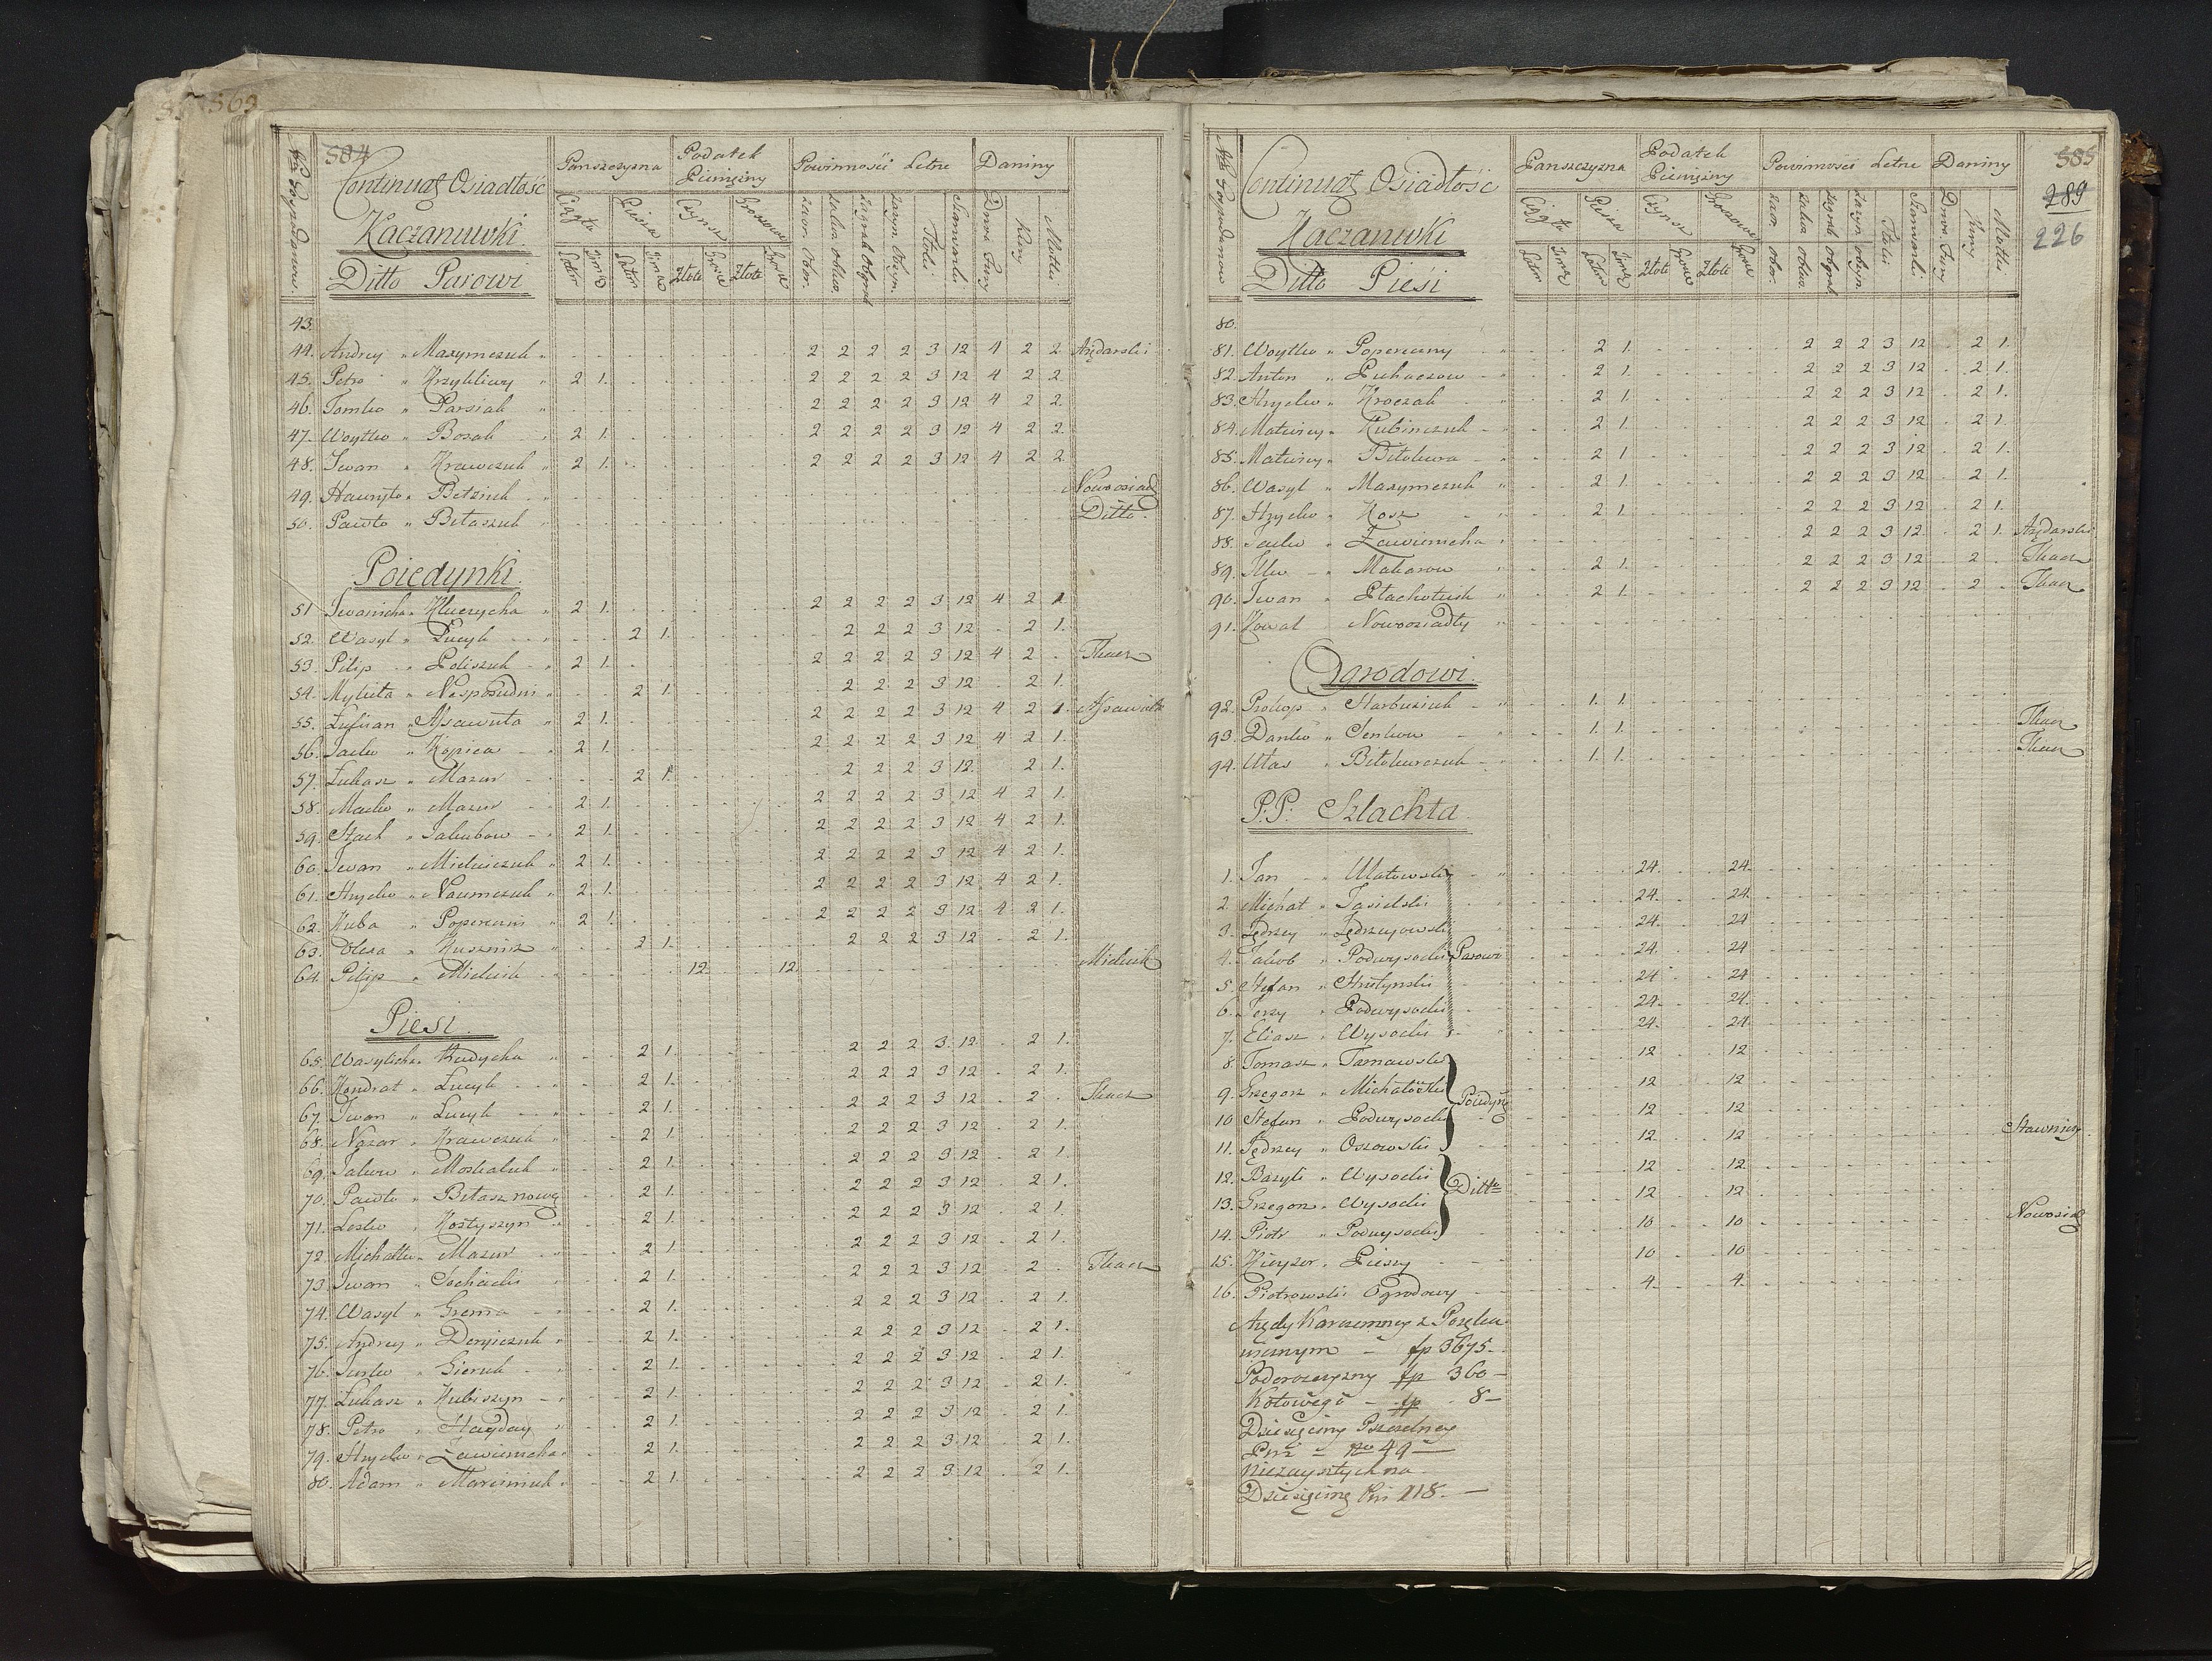 584
Continuat Osiadłość
Kaczanuwki
Ditto Parowi
Nro Gospodarzow
Panszczyzna
Podatek Pieniężny
Powinności Letne
Daniny
Ciągła Piesza Czynsz Groszowe
43.
44. Andrey " Maxymczuk " 2 2 2 2 3 12 4 2 2. Arędarski
45. Petro " Krzykliwy " 2 1. 2 2 2 2 3 12 4 2 2.
46. Tomko " Parsiak " 2 2 2 2 3 12 4 2 2.
47. Woytko " Bosak " 2 1. 2 2 2 2 3 12 4 2 2.
48. Iwan " Krawczuk " 2 1. 2 2 2 2 3 12 4 2 2.
49. Hawryło " Betziuk " Nowosiad
50. Pawło " Biłaszuk " Ditto.
Poiedynki.
51 Iwanicha " Kluczycha " 2 1. 2 2 2 2 3 12 4 2 1
52. Wasyl " Łucyk 2 1. 2 2 2 3 12 2 1.
53. Pilip " Poliszuk " 2 1. 2 2 2 2 3 12 4 2 Tkacz
54. Mykita " Nesposudni " 2 1. 2 2 2 3 12 2 1.
55. Łukian " Assawuła " 2 1. 2 2 2 2 3 12 4 2 1. Assawuła
56. Jacko " Kopica " 2 1. 2 2 2 2 3 12 4 2 1.
57. Łukasz " Mazur 2 1. 2 2 2 3 12 2 1.
58. Maćko " Mazur 2 1. 2 2 2 2 3 12 4 2 1.
59. Stach " Jakubow 2 1. 2 2 2 2 3 12 4 2 1.
60. Iwan " Mielniczuk " 2 1. 2 2 2 2 3 12 4 2 1.
61. Hryćko " Naumczuk " 2 1. 2 2 2 2 3 12 4 2 1.
62. Kuba " Popereczni " 2 1. 2 2 2 2 3 12 4 2 1.
63. Olexa " Kusznirz " 2 1. 2 2 2 3 12 2 1.
64. Pilip " Mielnik 12. 12. Mielnik
Piesi.
65. Wasylicha " Kudycha " 2 1. 2 2 2 3 12 2 1.
66. Kondrat " Łucyk 2 1. 2 2 2 3 12 2 1.
67. Iwan " Łucyk 2 1. 2 2 2 3 12 2 Tkacz
68. Nazar " Krawczuk " 2 1. 2 2 2 3 12 2 1.
69. Jakow " Moskaluk " 2 1. 2 2 2 3 12 2 1.
70. Pawło " Biłasz nowy 2 1. 2 2 2 3 12 2 1.
71. Lesko " Kostyszyn " 2 1. 2 2 2 3 12 2 1.
72. Michałko " Mazur 2 1. 2 2 2 3 12 2 1.
73. Iwan " Sochacki " 2 1. 2 2 2 3 12 2 Tkacz
74. Wasyl " Grema 2 1. 2 2 2 3 12 2 1.
75. Andrey " Deryiczuk " 2 1. 2 2 2 3 12 2 1.
76. Iwsko " Gieruk 2 1. 2 2 2 3 12 2 1.
77. Łukasz " Kubiszyn 2 1. 2 2 2 3 12 2 1.
78. Petro " Hayday 2 1. 2 2 2 3 12 2 1.
79. Hryćko " Zawiernicha " 2 1. 2 2 2 3 12 2 1.
80. Adam " Marciniuk " 2 1. 2 2 2 3 12 2 1.
585
289
226
Continuat Osiadłość
Kaczanuwki
Ditto Piesi
Nro Gospodarzow
Panszczyzna
Podatek Pieniężny
Powinności Letne
Daniny
80.
81. Woytko " Popereczny 2 1. 2 2 2 3 12 2 1.
82. Anton " Puhaczow 2 1. 2 2 2 3 12 2 1.
83. Hryćko " Kroczak 2 1. 2 2 2 3 12 2 1.
84. Matwiey " Kubinczuk 2 1. 2 2 2 3 12 2 1.
85. Matwiey " Biłokura 2 1. 2 2 2 3 12 2 1.
86. Wasyl " Maxymczuk " 2 1. 2 2 2 3 12 2 1.
87. Hryćko " Kosz 2 1. 2 2 2 3 12 2 1.
88. Jacko " Zawiernicha 2 2 2 3 12 2 1. Arędarski
89. Ilko " Makarow 2 1. 2 2 2 3 12 2 Tkacz
90. Iwan " Płachotiuk " 2 1. 2 2 2 3 12 2 Tkacz
91. Kowal Nowoosiadły "
Ogrodowi.
92. Prokop " Harbuziuk 1. 1.
93. Danko " Senkow 1. 1. Tkacz
94. Ułas " Biłokurczuk 1. 1. Tkacz
P.P. Szlachta
1. Jan " Ułatowski 24. 24.
2. Michał " Jasielski 24. 24.
3. Jędrzey " Jędrzeyowski 24. 24
4. Jakob " Podwysocki Parowi 24. 24
5. Stefan " Hustynski 24. 24
6. Jerzy " Podwysocki 24. 24.
7. Eliasz " Wysocki 24. 24.
8. Tomasz " Tarnawski 12 12.
9. Grzegorz " Michałowski Poiedyń 12. 12.
10 Stefan " Podwysocki 12. 12.
11. Jędrzey " Oszowski 12. 12. Stawniczy
12. Bazyli " Wysocki Ditto 12 12.
13. Grzegorz " Wysocki 12. 12.
14. Piotr " Podwysocki 10 10 Nowosiad
15. Kieyzer " Pieszy 10. 10.
16. Piotrowski Ogrodowy 4. 4.
Arędy Karczemney z Poszłu
winnym - fp 3675-
Podoroszczyzny fp 360-
Kołowego - fp 8-
Dziesięciny Pszczelney
Pni - Nro 49 -
Niezwysztych na
Dziesięcinę Pni 118. -